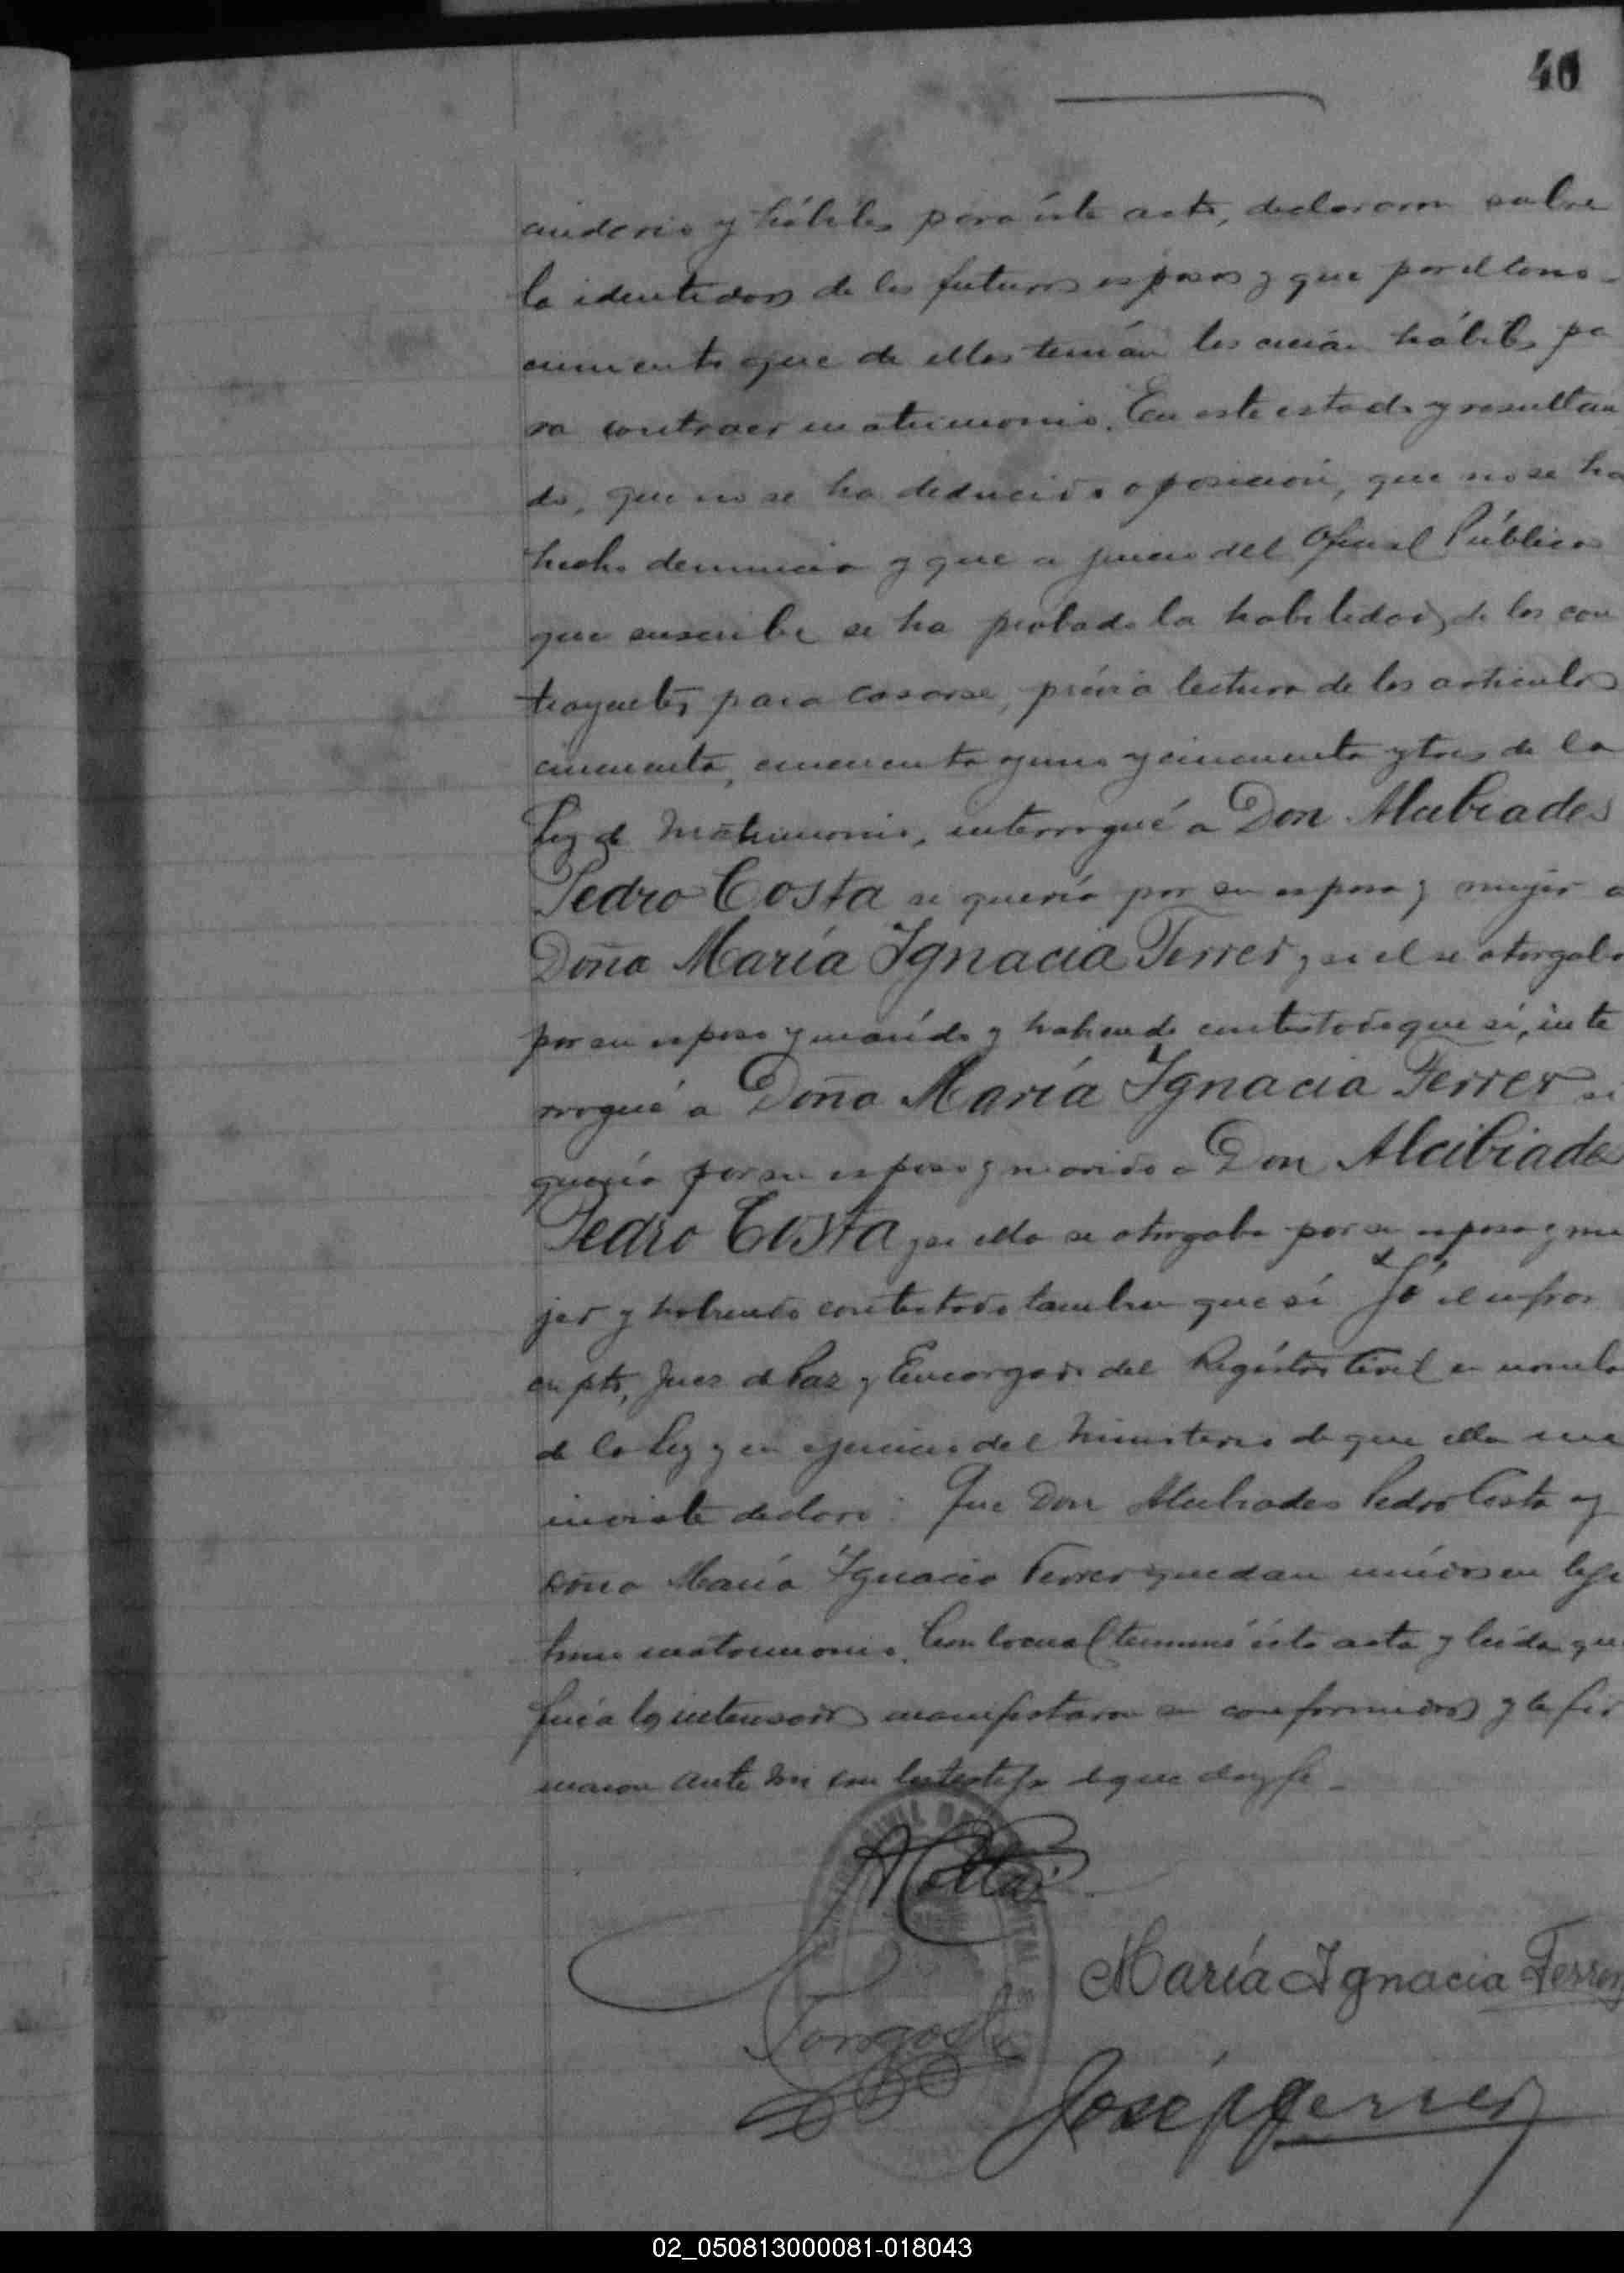 40
cindario y hábiles para éste acto, declararon sobre
la identidad de los futuros esposos y que por el cono-
cimiento que de ellos tenián los creián hábiles pa
ra contraer matrimonio. En este estado y resultan
do, que no se ha deducido oposicion, que no se ha
hecho denuncia y que a juicio del Oficial Público
que suscribe se ha probado la habilidad de los con
trayentes para casarse, prévia lectura de los articulos
cincuenta, cincuenta y uno y cincuenta y tres de la
Ley de Matrimonio, interrogué a Don Alcibiades
Pedro Costa si quería por su esposa y mujer a
Doña María Ignacia Ferrer y si el se otorgaba
por su esposo y marido y habiendo contestado que sí, inte
rrogué a Doña María Ignacia Ferrer si
quería por su esposo y marido a Don Alcibiades
Pedro Costa y si ella se otorgaba por su esposa y mu
jer y habiendo contestado tambien que sí Yó el infras
cripto, Juez de Paz y Encargado del Registro Civil en nombre
de la Ley y en ejercicio del Ministerio de que ella me
inviste declaro: Que Don Alcibiades Pedro Costa y
Doña María Ignacia Ferrer quedan unidos en legi
timo matrimonio. Con lo cual terminó ésta acta y leída que
fué a los interesados manifestaron su conformidad y la fir
maron ante mi con los testigos de que doy fe.
María Ignacia Ferrer
José Ferrer
02_050813000081-018043